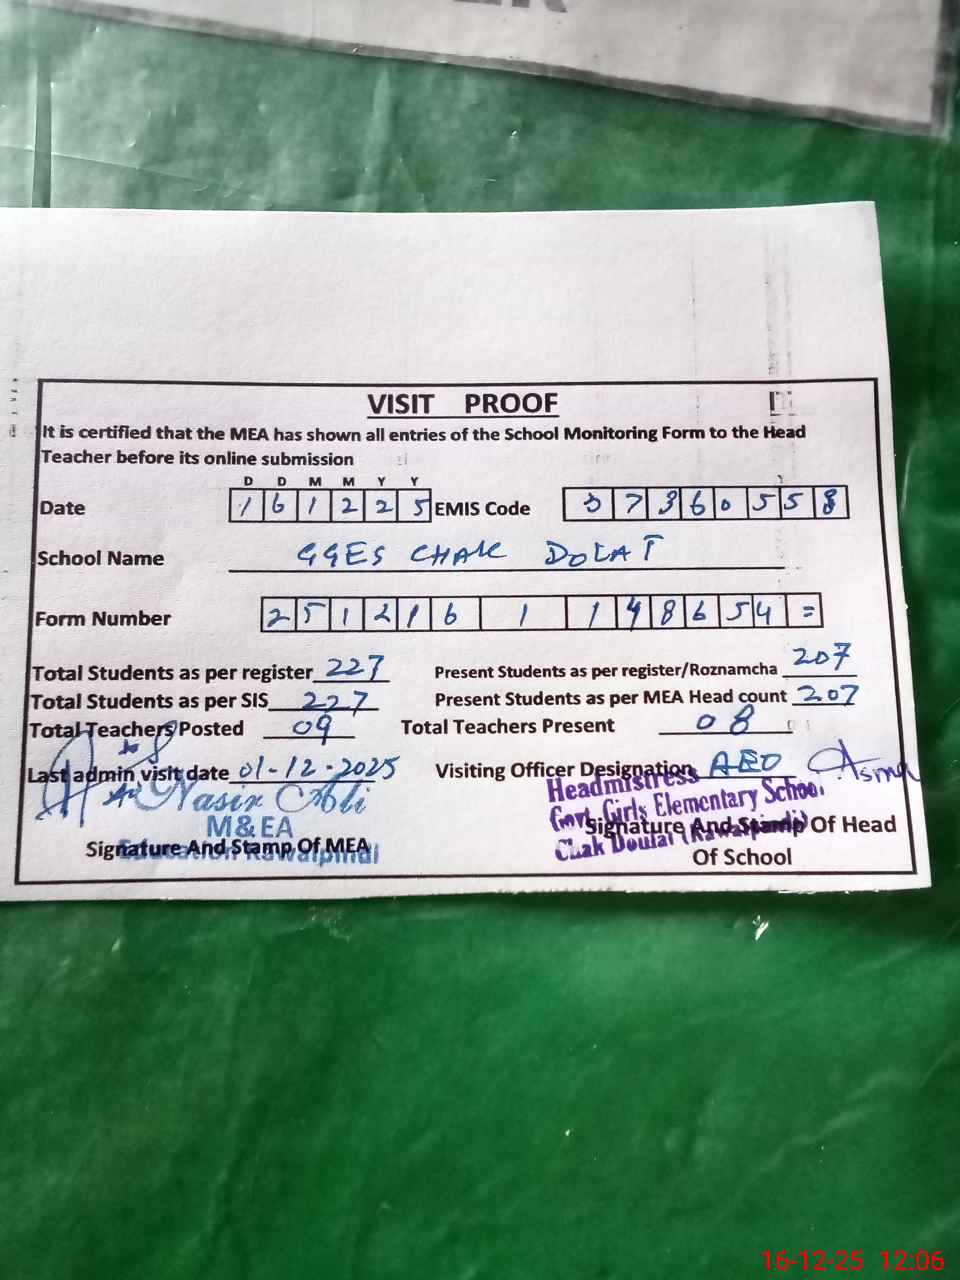 VISIT PROOF
It is certified that the MEA has shown all entries of the School Monitoring Form to the Head
Teacher before its online submission
D D M M Y Y
Date 1 6 1 2 2 5 EMIS Code 3 7 3 6 0 5 5 8
School Name GGES CHAK DOLAT
Form Number 2 5 1 2 1 6 1 1 4 8 6 5 4 =
Total Students as per register 227 Present Students as per register/Roznamcha 207
Total Students as per SIS 227 Present Students as per MEA Head count 207
Total Teachers Posted 09 Total Teachers Present 08
Last admin visit date 01-12-2025 Visiting Officer Designation AEO Asma
Nasir Ali
M&EA
Education Rawalpindi
Signature And Stamp Of MEA
Headmistress
Govt. Girls Elementary School
Chak Doulat (Rawalpindi)
Signature And Stamp Of Head
Of School
16-12-25 12:06